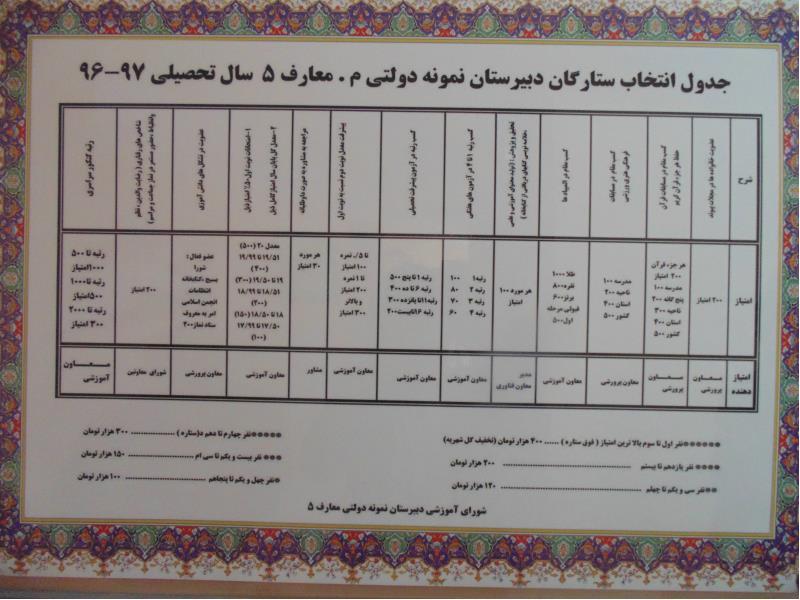 جدول انتخاب ستارگان دبیرستان نمونه دولتی م . معارف ۵ سال تحصیلی ۹۷-۹۶
عضویت خانواده ها در مجلات پیوند
کسب مقام در مسابقات قرآن
حفظ هر جزء قرآن کریم
کسب مقام در مسابقات
فرهنگی هنری ورزشی
کسب مقام در المپیاد ها
تحقیق و پژوهش : (تولید محتوای آموزشی و علمی
کسب رتبه ۱ تا ۴ در آزمون های هفتگی
کسب رتبه در آزمون پیشرفت تحصیلی
پیشرفت معدل نوبت دوم نسبت به نوبت اول
مراجعه به مشاوره به صورت داوطلبانه
۱-امتحانات نوبت اول ۵۰٪ امتیاز ذیل
۲-معدل کل پایان سال امتیاز کامل ذیل
عضویت در تشکل های دانش آموزی
شاخص های رفتاری ( رضایت والدین ، نظم
وانضباط ،حضور مستمر در نماز جماعت و مراسم)
رتبه کنکور سراسری
امتیاز
۲۰۰ امتیاز
هر جزء قرآن
۲۰۰ امتیاز
مدرسه ۱۰۰
پنج گانه ۲۰۰
ناحیه ۳۰۰
استان ۴۰۰
کشور ۵۰۰
مدرسه ۱۰۰
ناحیه ۲۰۰
استان ۴۰۰
کشور ۵۰۰
طلا ۱۰۰۰
نقره۸۰۰
برنز۶۰۰
قبولی مرحله
اول۵۰۰
هر مورد ۱۰۰
امتیاز
رتبه۱ ۱۰۰
رتبه ۲ ۸۰
رتبه ۳ ۷۰
رتبه ۴ ۶۰
رتبه ۱ تا پنج ۵۰۰
رتبه ۶ تا ده ۴۰۰
رتبه ۱۱ تا پانزده ۳۰۰
رتبه ۱۶ تابیست۲۰۰
تا ۰/۵ نمره
۱۰۰ امتیاز
تا ۱ نمره
۲۰۰ امتیاز
و بالاتر
۳۰۰ امتیاز
هر مورد
۳۰ امتیاز
معدل ۲۰ (۵۰۰)
۱۹/۵۱ تا ۱۹/۹۹
(۴۰۰)
۱۹ تا ۱۹/۵۰ (۳۰۰)
۱۸/۵۱ تا ۱۸/۹۹
(۲۰۰)
۱۸ تا ۱۸/۵۰ (۱۵۰)
۱۷/۵۰ تا ۱۷/۹۹
(۱۰۰)
عضو فعال :
شورا
بسیج ،کتابخانه
انتظامات
انجمن اسلامی
امر به معروف
ستاد نماز۲۰۰
۲۰۰ امتیاز
رتبه تا ۵۰۰
۱۰۰۰امتیاز
رتبه تا۱۰۰۰
۵۰۰امتیاز
رتبه تا ۲۰۰۰
۳۰۰ امتیاز
امتیاز
دهنده
معاون
پرورشی
معاون
پرورشی
معاون پرورشی
معاون آموزشی
مدیر
معاون فناوری
معاون آموزشی
معاون آموزشی
معاون آموزشی
مشاور
معاون آموزشی
معاون پرورشی
شورای معاونین
معاون
آموزشی
******نفر اول تا سوم بالا ترین امتیاز ( فوق ستاره ) ...... ۴۰۰ هزار تومان (تخفیف کل شهریه)
*****نفر چهارم تا دهم (ستاره ) .................. ۳۰۰ هزار تومان
****نفر یازدهم تا بیستم .................. ۲۰۰ هزار تومان
*** نفر بیست و یکم تا سی ام .................. ۱۵۰ هزار تومان
**نفر سی و یکم تا چهلم .................. ۱۲۰ هزار تومان
* نفر چهل و یکم تا پنجاهم .................. ۱۰۰ هزار تومان
شورای آموزشی دبیرستان نمونه دولتی معارف ۵